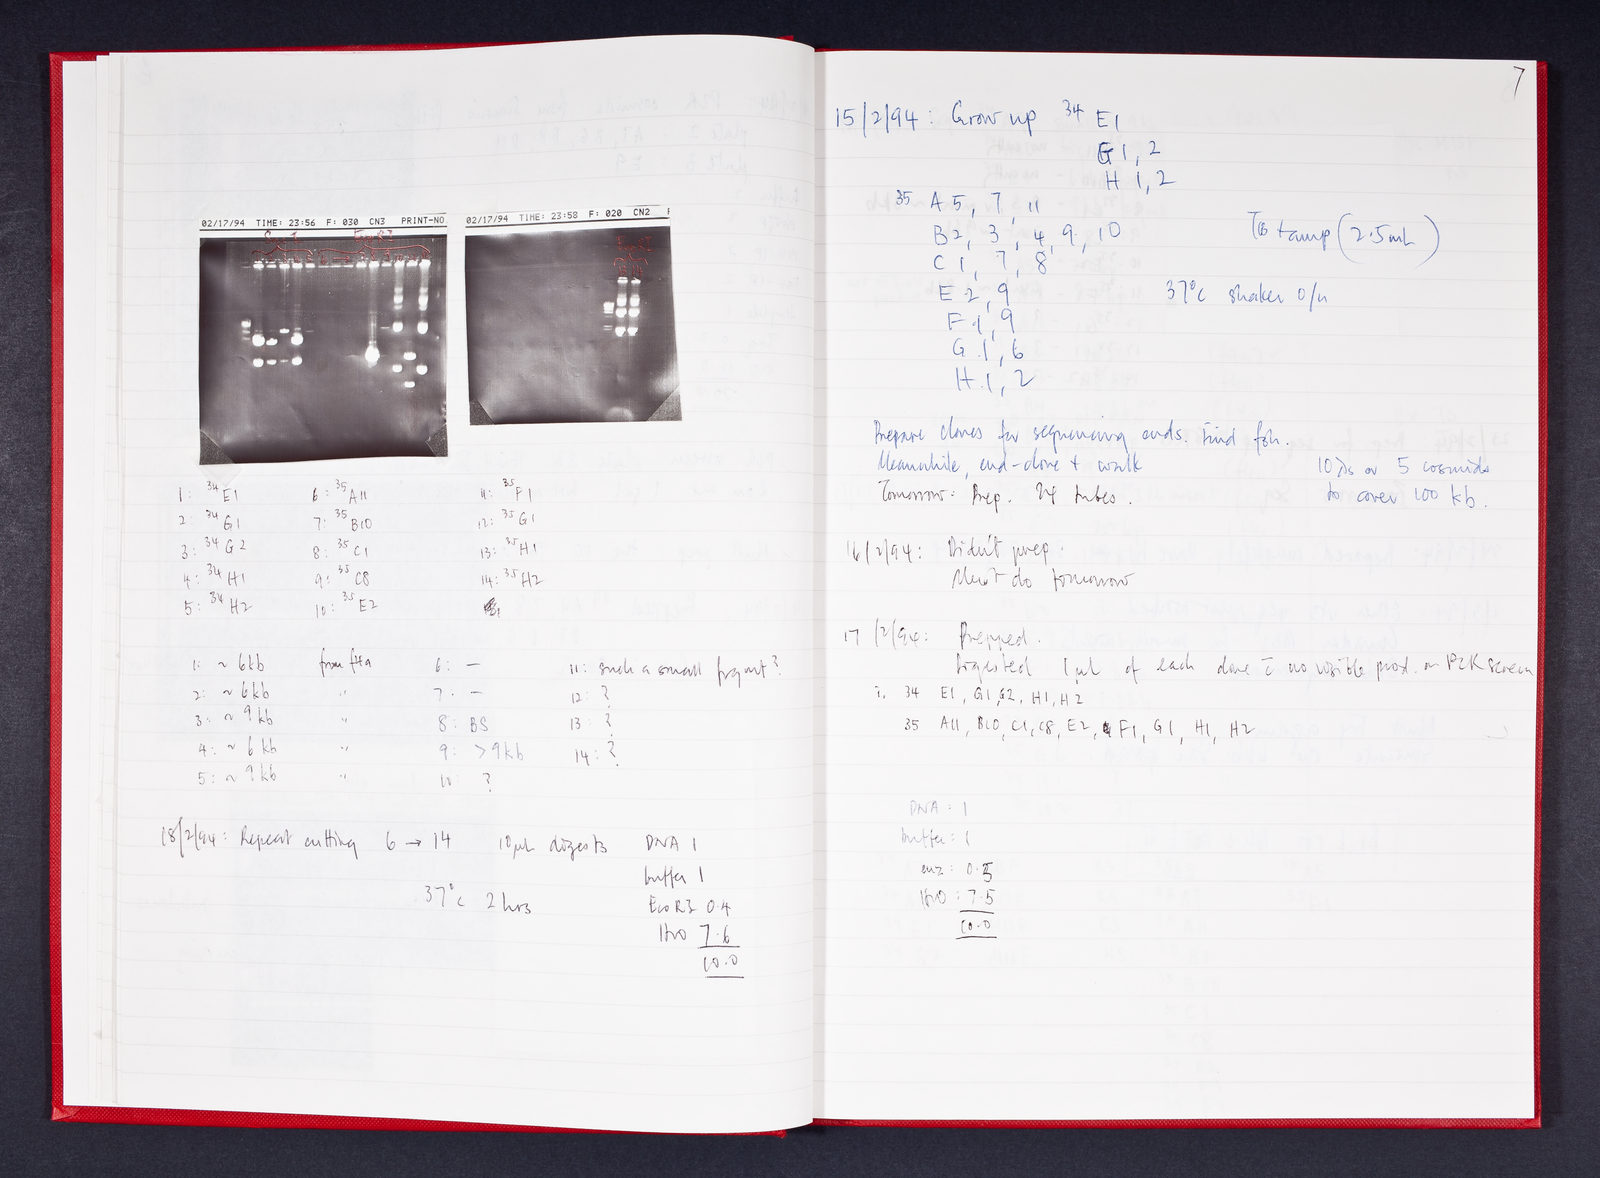 02/17/94 TIME: 23:56 F: 030 CN3 PRINT-NO
02/17/94 TIME: 23:58 F: 020 CN2
EcoRI
1: 34 E1
2: 34 G1
3: 34 G2
4: 34 H1
5: 34 H2
6: 35 A11
7: 35 B10
8: 35 C1
9: 35 C8
10: 35 E2
11: 35 F1
12: 35 G1
13: 35 H1
14: 35 H2
1: ~ 6kb from
2: ~ 6kb "
3: ~ 9kb "
4: ~ 6kb "
5: ~ 9kb "
6: —
7: —
8: BS
9: >9kb
10: ?
11: such a small fragment?
12: ?
13: ?
14: ?
18/2/94: Repeat cutting 6 → 14 10µl digests DNA 1
buffer 1
37°C 2hrs EcoRI 0.4
H2O 7.6
10.0
7
15/2/94: Grow up 34 E1
G1, 2
H 1, 2
35 A 5, 7, 11
B2, 3, 4, 9, 10
C 1, 7, 8
E 2, 9
F 1, 9
G 1, 6
H 1, 2
TB + amp (2.5ml)
37°C shaker o/n
Prepare clones for sequencing ends. Find fsh.
Meanwhile, end-clone + walk
Tomorrow: Prep. 24 tubes.
10 λs or 5 cosmids
to cover 100 kb.
16/2/94: Didn't prep.
Must do tomorrow
17/2/94: Prepped.
Digested 1µl of each clone c̄ no visible prod. on screen
i. 34 E1, G1, G2, H1, H2
35 A11, B10, C1, C8, E2, F1, G1, H1, H2
DNA: 1
buffer: 1
enz: 0.5
H2O: 7.5
10.0